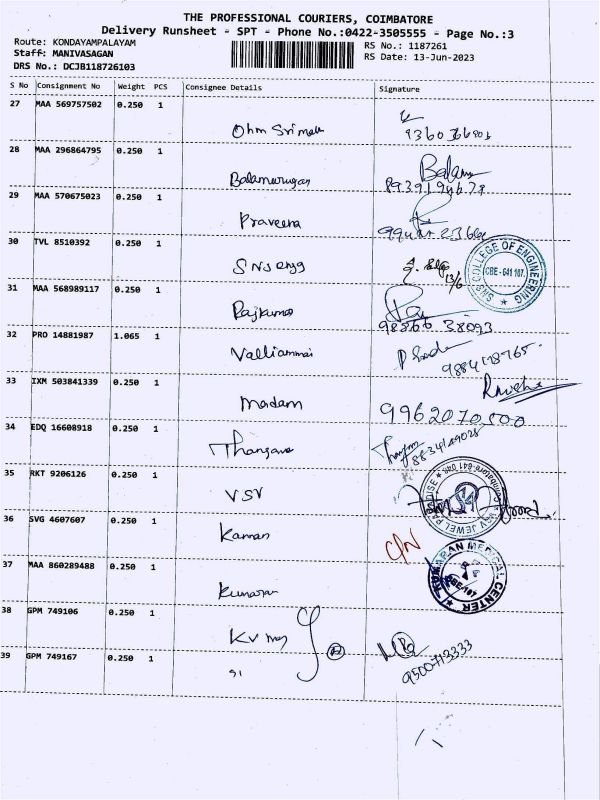 THE PROFESSIONAL COURIERS, COIMBATORE
Delivery Runsheet - SPT - Phone No.:0422-3505555 - Page No.:3
Route: KONDAYAMPALAYAM
Staff: MANIVASAGAN
DRS No.: DCJB118726103
RS No.: 1187261
RS Date: 13-Jun-2023
S No Consignment No Weight PCS Consignee Details Signature
27 MAA 569757502 0.250 1
Ohm Sri
28 MAA 296864795 0.250 1
Balamurugan
29 MAA 570675023 0.250 1
Praveena
30 TVL 8510392 0.250 1
SNS engg 13/6
SNS COLLEGE OF ENGINEERING
CBE - 641 107.
31 MAA 568989117 0.250 1
Rajkumar
98866 38093
32 PRO 14881987 1.065 1
Valliammai
33 IXM 503841339 0.250 1
madam 9962070500
34 EDQ 16608918 0.250 1
Thangam
35 RKT 9206126 0.250 1
VSV
JEWEL PARADISE
36 SVG 4607607 0.250 1
Kannan C/N
37 MAA 860289488 0.250 1
Kumaran
KUMARAN MEDICAL CENTER
CBE-107
38 GPM 749106 0.250 1
KV
39 GPM 749167 0.250 1
9500713333